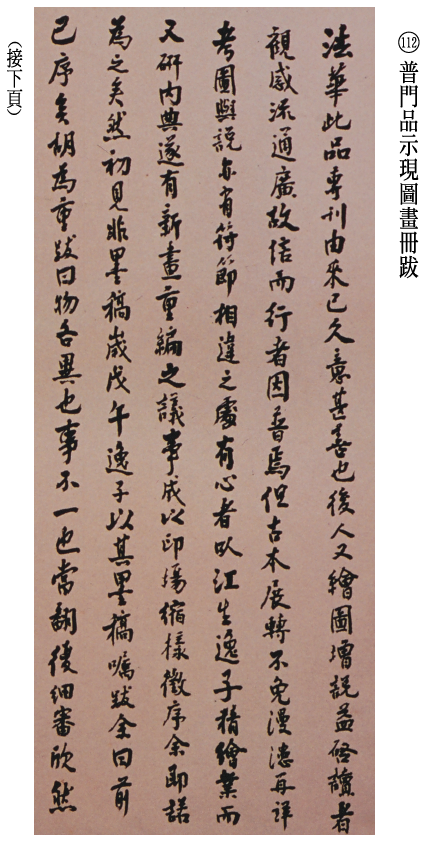 ⑫ 普門品示現圖畫冊跋
法華此品專刊由來已久意甚善也後人又繪圖增說益啓讀者
觀感流通廣故信而行者因普焉但古本展轉不免漫漶再詳
考圖與說亦有符節相違之處有心者以江生逸子精繪業而
又研內典遂有新畫重編之議事成以印場縮樣徵序余即諾
為之矣然初見非墨稿歲戊午逸子以其墨稿囑跋余曰前
已序矣胡為重跋曰物各異也事不一也當翻後細審欣然
(接下頁)